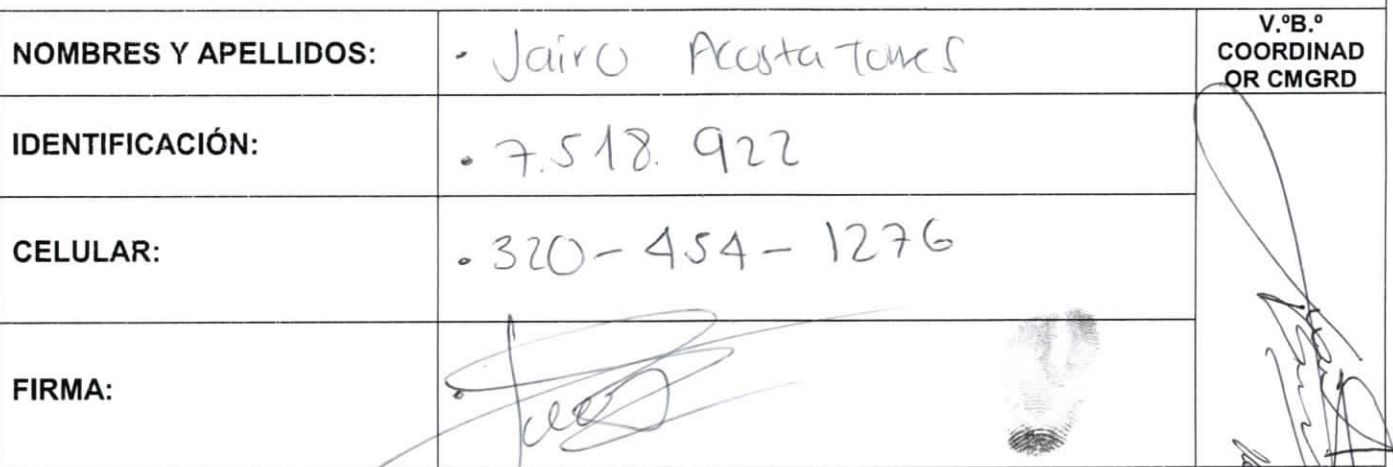 NOMBRES Y APELLIDOS: • Jairo Acosta Torres
V.ºB.º
COORDINAD
OR CMGRD
IDENTIFICACIÓN: • 7.518.922
CELULAR: • 320-454-1276
FIRMA: